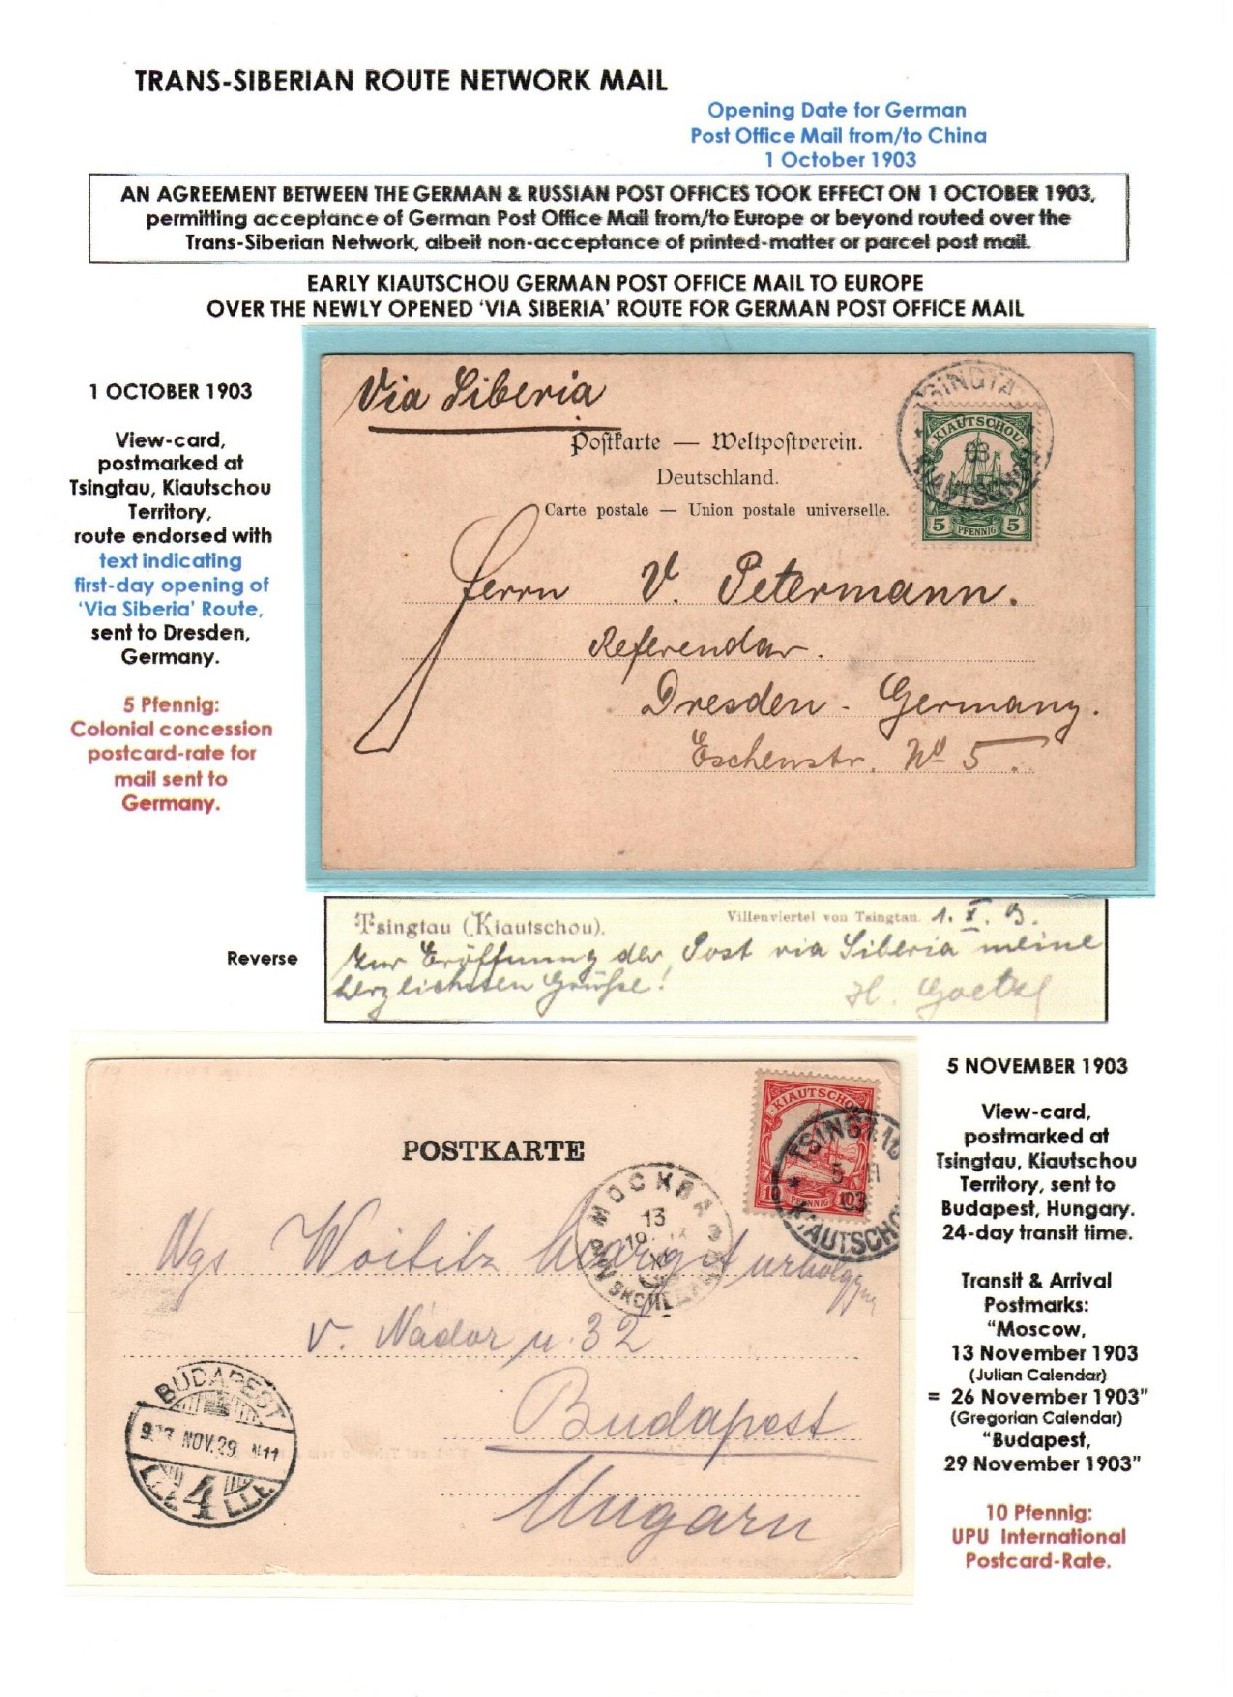 TRANS-SIBERIAN ROUTE NETWORK MAIL
Opening Date for German
Post Office Mail from/to China
1 October 1903
AN AGREEMENT BETWEEN THE GERMAN & RUSSIAN POST OFFICES TOOK EFFECT ON 1 OCTOBER 1903,
permitting acceptance of German Post Office Mail from/to Europe or beyond routed over the
Trans-Siberian Network, albeit non-acceptance of printed-matter or parcel post mail.
EARLY KIAUTSCHOU GERMAN POST OFFICE MAIL TO EUROPE
OVER THE NEWLY OPENED 'VIA SIBERIA' ROUTE FOR GERMAN POST OFFICE MAIL
1 OCTOBER 1903
View-card,
postmarked at
Tsingtau, Kiautschou
Territory,
route endorsed with
text indicating
first-day opening of
'Via Siberia' Route,
sent to Dresden,
Germany.
5 Pfennig:
Colonial concession
postcard-rate for
mail sent to
Germany.
Via Siberia
Postkarte — Weltpostverein.
Deutschland.
Carte postale — Union postale universelle.
TSINGTA
03
KIAUTSCHOU
KIAUTSCHOU
5 PFENNIG 5
Herrn V. Petermann.
Referendar.
Dresden - Germany.
Eschenstr. No 5.
Reverse
Tsingtau (Kiautschou).
Villenviertel von Tsingtau. 1. X. 3.
Zur Eröffnung der Post via Siberia meine
herzlichsten Grüße!
H. Goetzl
POSTKARTE
KIAUTSCHOU
10 PFENNIG
TSINGTAU
5 11
03
KIAUTSCHO
МОСКВА
13
Ngs Woititz Margit
v. Nádor u. 32
Budapest
Ungarn
BUDAPEST
NOV. 29 N11
4
5 NOVEMBER 1903
View-card,
postmarked at
Tsingtau, Kiautschou
Territory, sent to
Budapest, Hungary.
24-day transit time.
Transit & Arrival
Postmarks:
"Moscow,
13 November 1903
(Julian Calendar)
= 26 November 1903"
(Gregorian Calendar)
"Budapest,
29 November 1903"
10 Pfennig:
UPU International
Postcard-Rate.